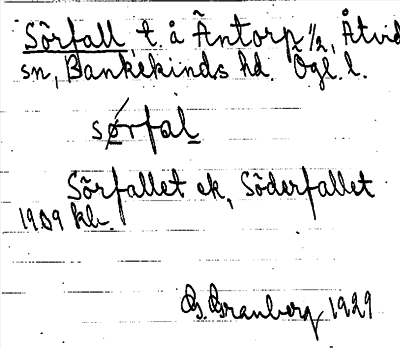 Sörfall, t. å Äntorp 1/2, Åtvid
sn, Bankekinds hd. Ögl. l.
sørfal
Sörfallet ek, Söderfallet
1909 kb.
G. Granberg 1929